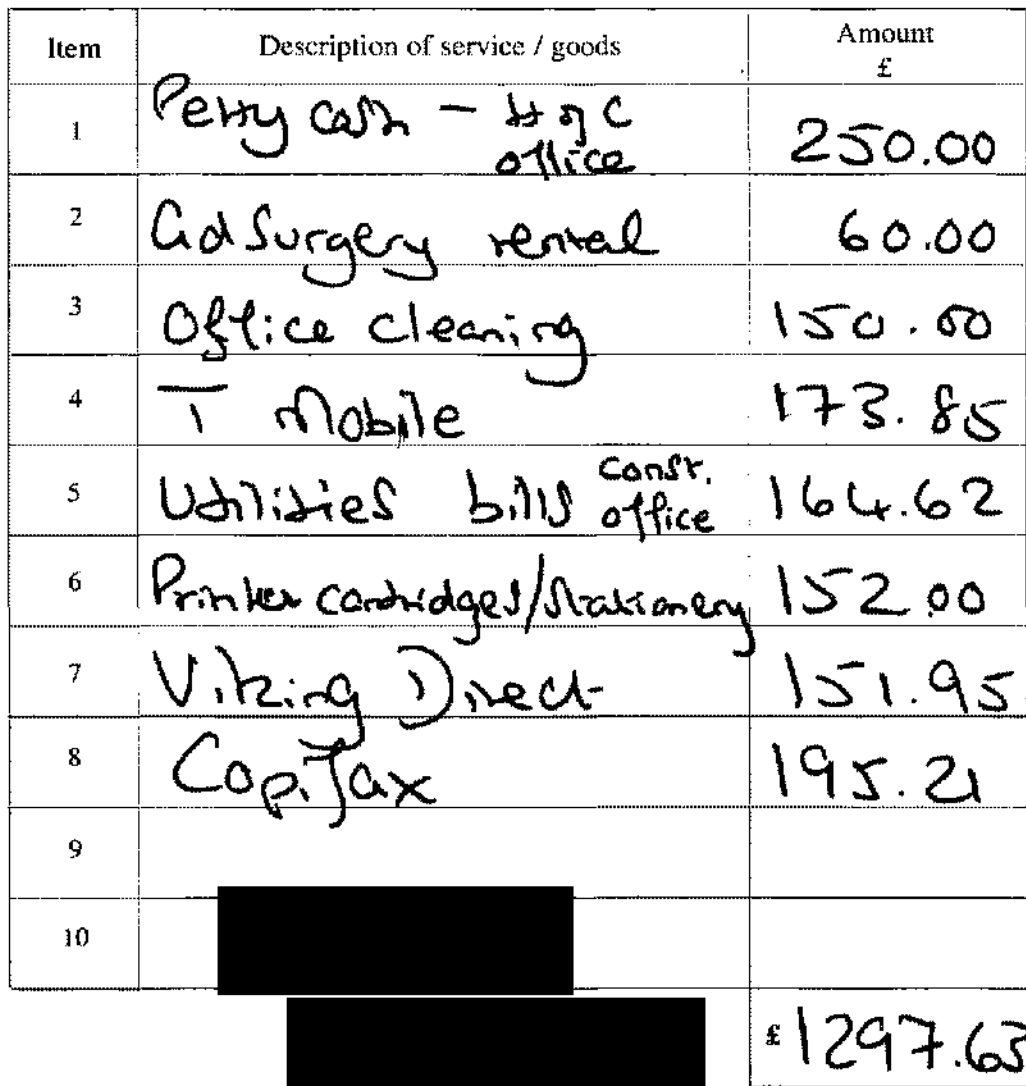 Item Description of service / goods Amount £
1 Petty cash - H of C office 250.00
2 Surgery rental 60.00
3 Office cleaning 150.00
4 T Mobile 173.85
5 Utilities bills const. office 164.62
6 Printer cartridges/stationery 152.00
7 Viking Direct 151.95
8 Copifax 195.21
9
10
£ 1297.63